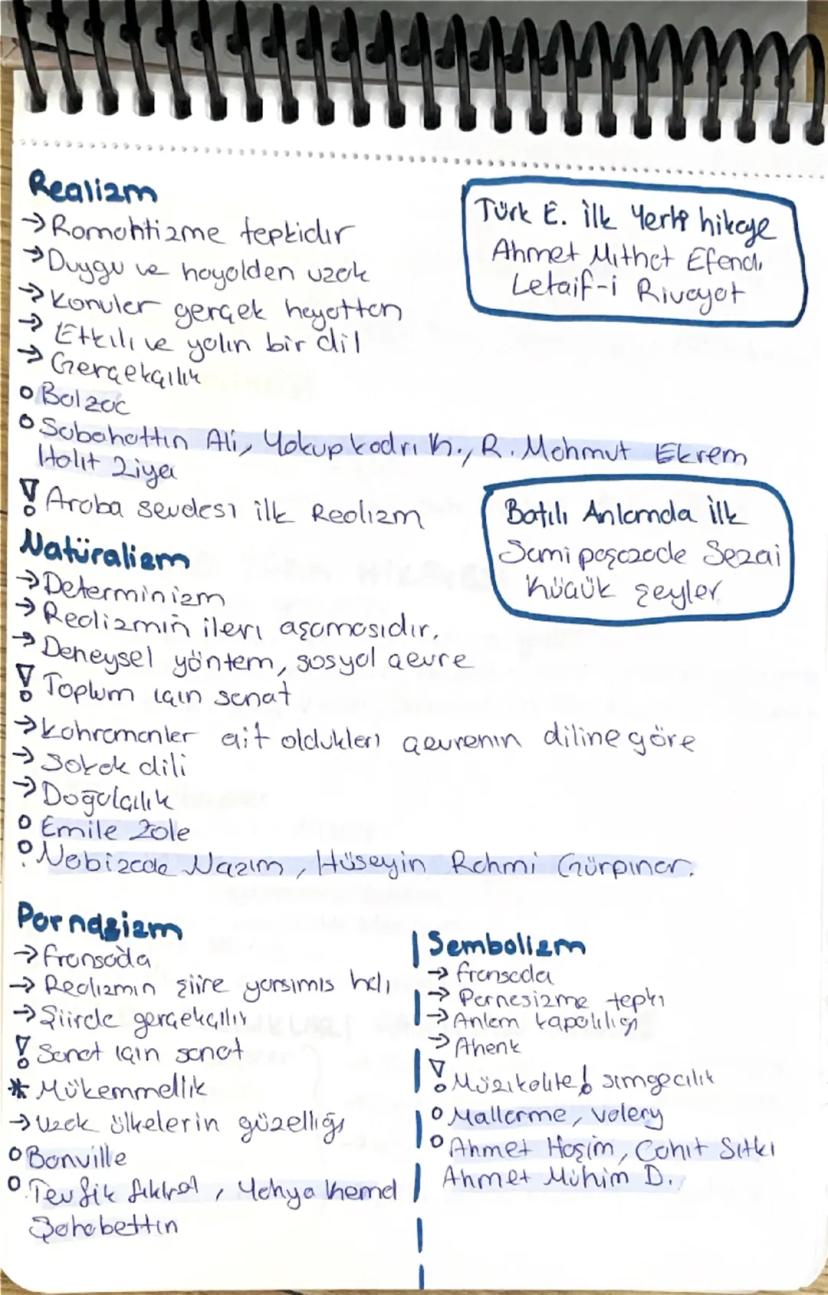 Realizm
→ Romantizme tepkidir
→ Duygu ve hayalden uzak
→ Konular gerçek hayattan
→ Etkili ve yalın bir dil
→ Gerçekçilik
o Balzac
o Sabahattin Ali, Yakup Kadri K., R. Mahmut Ekrem
Halit Ziya
! Araba sevdası ilk Realizm
Türk E. ilk Yerli hikaye
Ahmet Mithat Efendi
Letaif-i Rivayat
Batılı Anlamda İlk
Samipaşazade Sezai
Küçük Şeyler
Natüralizm
→ Determinizm
→ Realizmin ileri aşamasıdır.
→ Deneysel yöntem, sosyal çevre
! Toplum için sanat
→ Kahramanlar ait oldukları çevrenin diline göre
→ Sokak dili
→ Doğalcılık
o Emile Zola
o Nabizade Nazım, Hüseyin Rahmi Gürpınar.
Parnasizm
→ Fransada
→ Realizmin şiire yansımış hali
→ Şiirde gerçekçilik
! Sanat için sanat
* Mükemmellik
→ Uzak ülkelerin güzelliği
o Banville
o Tevfik Fikret, Yahya Kemal
Şahabettin
Sembolizm
→ Fransada
→ Parnasizme tepki
→ Anlam kapalılığı
→ Ahenk
! Müzikalite! simgecilik
o Mallarme, Valery
o Ahmet Haşim, Cahit Sıtkı
Ahmet Muhim D.